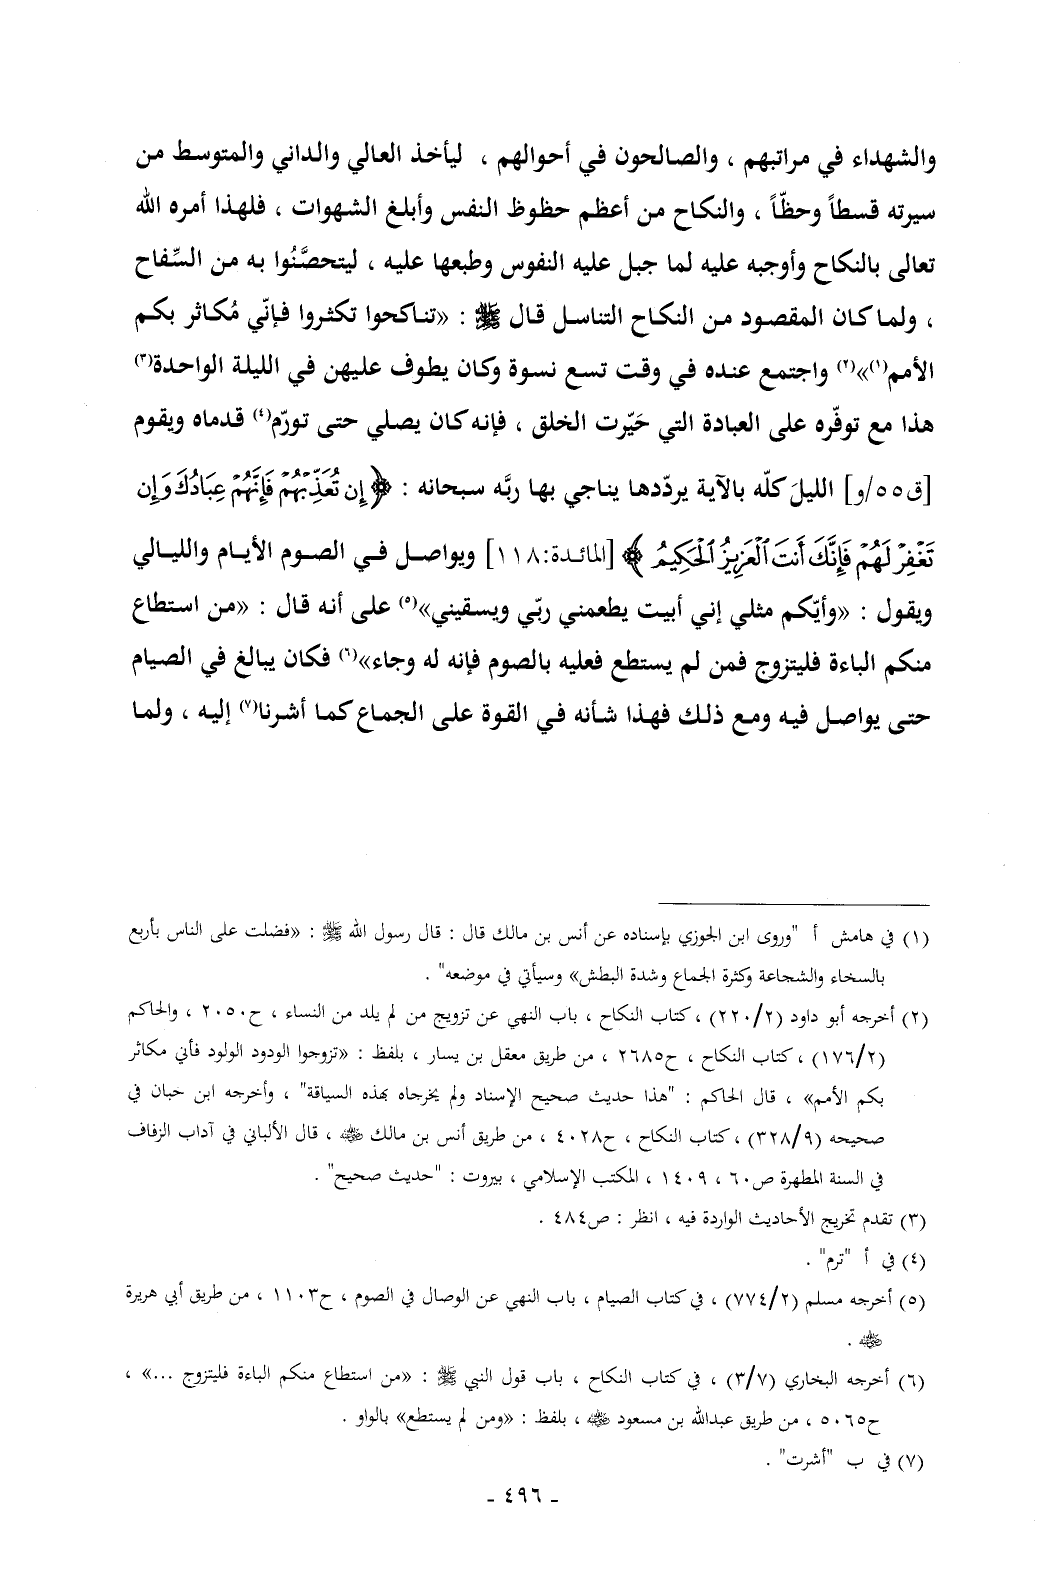 والشهداء في مراتبهم ، والصالحون في أحوالهم ، ليأخذ العالي والداني والمتوسط من
سيرته قسطاً وحظّاً ، والنكاح من أعظم حظوظ النفس وأبلغ الشهوات ، فلهذا أمره الله
تعالى بالنكاح وأوجبه عليه لما جبل عليه النفوس وطبعها عليه ، ليتحصَّنُوا به من السِّفاح
، ولما كان المقصود من النكاح التناسل قال ﷺ : «تناكحوا تكثروا فإنّي مُكاثر بكم
الأمم(١)»(٢) واجتمع عنده في وقت تسع نسوة وكان يطوف عليهن في الليلة الواحدة(٣)
هذا مع توفّره على العبادة التي حَيّرت الخلق ، فإنه كان يصلي حتى تورّم(٤) قدماه ويقوم
[ق٥٥/و] الليلَ كلّه بالآية يردّدها يناجي بها ربَّه سبحانه : ﴿إِن تُعَذِّبْهُمْ فَإِنَّهُمْ عِبَادُكَ وَإِن
تَغْفِرْ لَهُمْ فَإِنَّكَ أَنتَ ٱلْعَزِيزُ ٱلْحَكِيمُ﴾ [المائدة:١١٨] ويواصل في الصوم الأيام والليالي
ويقول : «وأيّكم مثلي إني أبيت يطعمني ربّي ويسقيني»(٥) على أنه قال : «من استطاع
منكم الباءة فليتزوج فمن لم يستطع فعليه بالصوم فإنه له وجاء»(٦) فكان يبالغ في الصيام
حتى يواصل فيه ومع ذلك فهذا شأنه في القوة على الجماع كما أشرنا(٧) إليه ، ولما
(١) في هامش أ "وروى ابن الجوزي بإسناده عن أنس بن مالك قال : قال رسول الله ﷺ : «فضلت على الناس بأربع
بالسخاء والشجاعة وكثرة الجماع وشدة البطش» وسيأتي في موضعه" .
(٢) أخرجه أبو داود (٢/٢٢٠) ، كتاب النكاح ، باب النهي عن تزويج من لم يلد من النساء ، ح٢٠٥٠ ، والحاكم
(٢/١٧٦) ، كتاب النكاح ، ح٢٦٨٥ ، من طريق معقل بن يسار ، بلفظ : «تزوجوا الودود الولود فأني مكاثر
بكم الأمم» ، قال الحاكم : "هذا حديث صحيح الإسناد ولم يخرجاه بهذه السياقة" ، وأخرجه ابن حبان في
صحيحه (٩/٣٢٨) ، كتاب النكاح ، ح٤٠٢٨ ، من طريق أنس بن مالك ﷺ ، قال الألباني في آداب الزفاف
في السنة المطهرة ص٦٠ ، ١٤٠٩ ، المكتب الإسلامي ، بيروت : "حديث صحيح" .
(٣) تقدم تخريج الأحاديث الواردة فيه ، انظر : ص٤٨٤ .
(٤) في أ "ترم" .
(٥) أخرجه مسلم (٢/٧٧٤) ، في كتاب الصيام ، باب النهي عن الوصال في الصوم ، ح١١٠٣ ، من طريق أبي هريرة
رضي الله عنه .
(٦) أخرجه البخاري (٧/٣) ، في كتاب النكاح ، باب قول النبي ﷺ : «من استطاع منكم الباءة فليتزوج ...» ،
ح٥٠٦٥ ، من طريق عبدالله بن مسعود رضي الله عنه ، بلفظ : «ومن لم يستطع» بالواو .
(٧) في ب "أشرت" .
- ٤٩٦ -